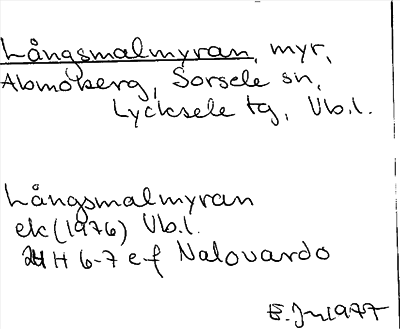 Långsmalmyran, myr,
Abmoberg, Sorsele sn,
Lycksele tg, Vb.l.
Långsmalmyran
ek (1976) Vb.l.
24 H 6-7 e-f Nalovardo
1977